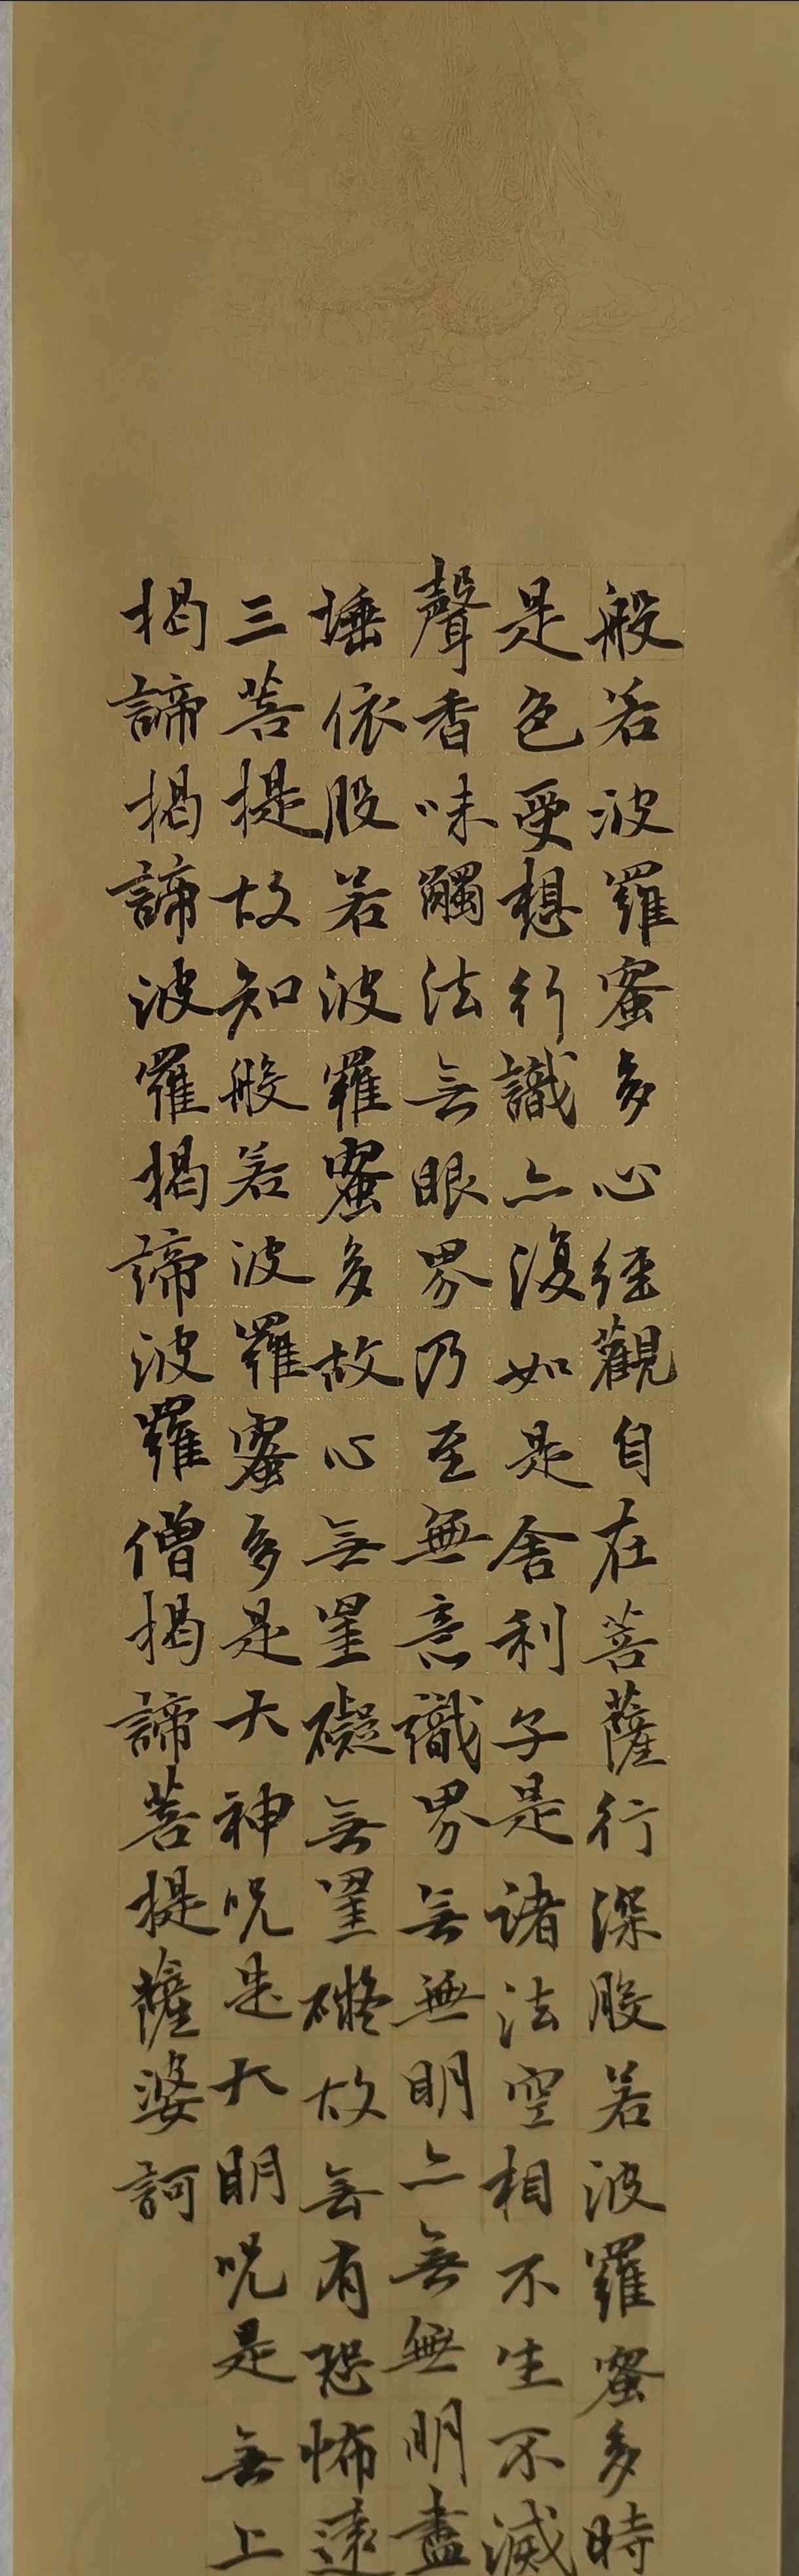 般若波羅蜜多心經觀自在菩薩行深般若波羅蜜多時
是色受想行識亦復如是舍利子是諸法空相不生不滅
聲香味觸法無眼界乃至無意識界無無明亦無無明盡
埵依般若波羅蜜多故心無罣礙無罣礙故無有恐怖遠
三菩提故知般若波羅蜜多是大神咒是大明咒是無上
揭諦揭諦波羅揭諦波羅僧揭諦菩提薩婆訶